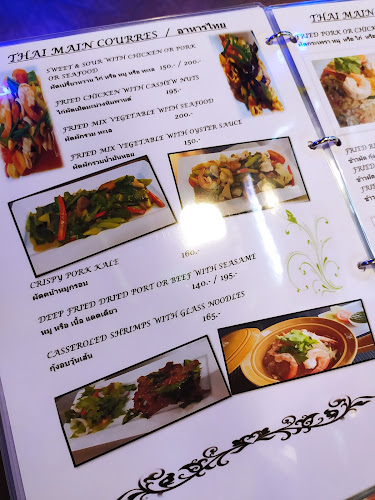 THAI MAIN COURRES / อาหารไทย
SWEET & SOUR WITH CHICKEN OR PORK
OR SEAFOOD
ผัดเปรี้ยวหวาน ไก่ หรือ หมู หรือ ทะเล 150.- / 200.-
FRIED CHICKEN WITH CASHEW NUTS
ไก่ผัดเม็ดมะม่วงหิมพานต์ 195.-
FRIED MIX VEGETABLE WITH SEAFOOD
ผัดผักรวม ทะเล 200.-
FRIED MIX VEGETABLE WITH OYSTER SAUCE
ผัดผักรวมน้ำมันหอย 150.-
CRISPY PORK KALE 160.-
ผัดคะน้าหมูกรอบ
DEEP FRIED DRIED PORT OR BEEF WITH SEASAME
หมู หรือ เนื้อ แดดเดียว 140.- / 195.-
CASSEROLED SHRIMPS WITH GLASS NOODLES
กุ้งอบวุ้นเส้น 165.-
THAI MAIN
FRIED PORK OR CHICKEN
FRIED
FRIED